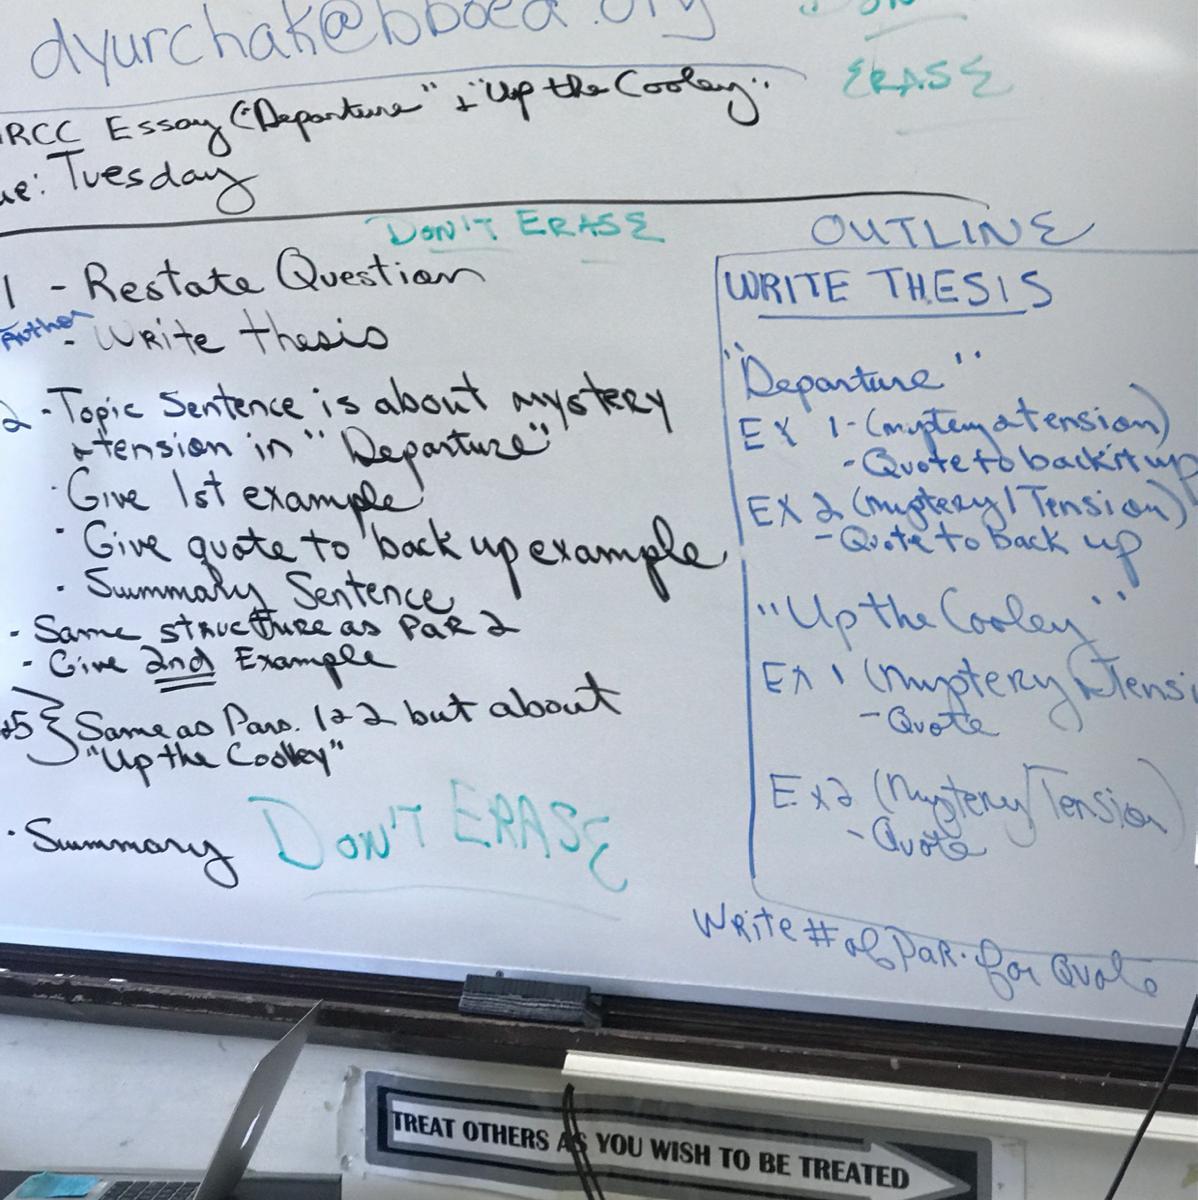 dyurchak@bboed.org
DON
ERASE
RCC Essay ("Departure" + "Up the Cooley".
ue: Tuesday
DON'T ERASE
1 - Restate Question
Author
- Write thesis
2 - Topic Sentence is about mystery
+ tension in "Departure"
· Give 1st example
· Give quote to back up example
· Summary Sentence
- Same structure as Par 2
- Give 2nd Example
+5 } Same as Pars. 1+2 but about
"Up the Cooley"
· Summary
DON'T ERASE
OUTLINE
WRITE THESIS
"Departure"
EX 1 - (mystery + tension)
- Quote to back it up
EX 2 (mystery/Tension)
- Quote to back up
"Up the Cooley"
EX 1 (mystery + Tensi
- Quote
Ex 2 (mystery/Tension)
- Quote
Write # of Par. for Quote
TREAT OTHERS AS YOU WISH TO BE TREATED